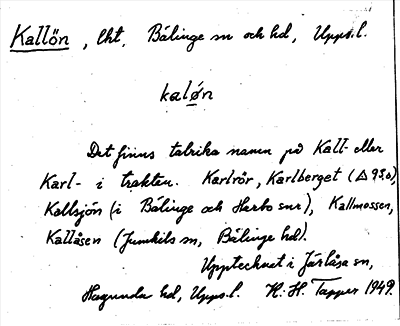 Kallön, lht, Bälinge sn och hd, Upps.l.
kaløn
Det finns talrika namn på Kall- eller
Karl- i trakten. Karlrör, Karlberget (△ 930),
Kallsjön (i Bälinge och Harbo snr), Kallmossen,
Kallåsen (Jumkils sn, Bälinge hd).
Upptecknat i Järlåsa sn,
Hagunda hd, Upps.l. H. H. Tapper 1949.